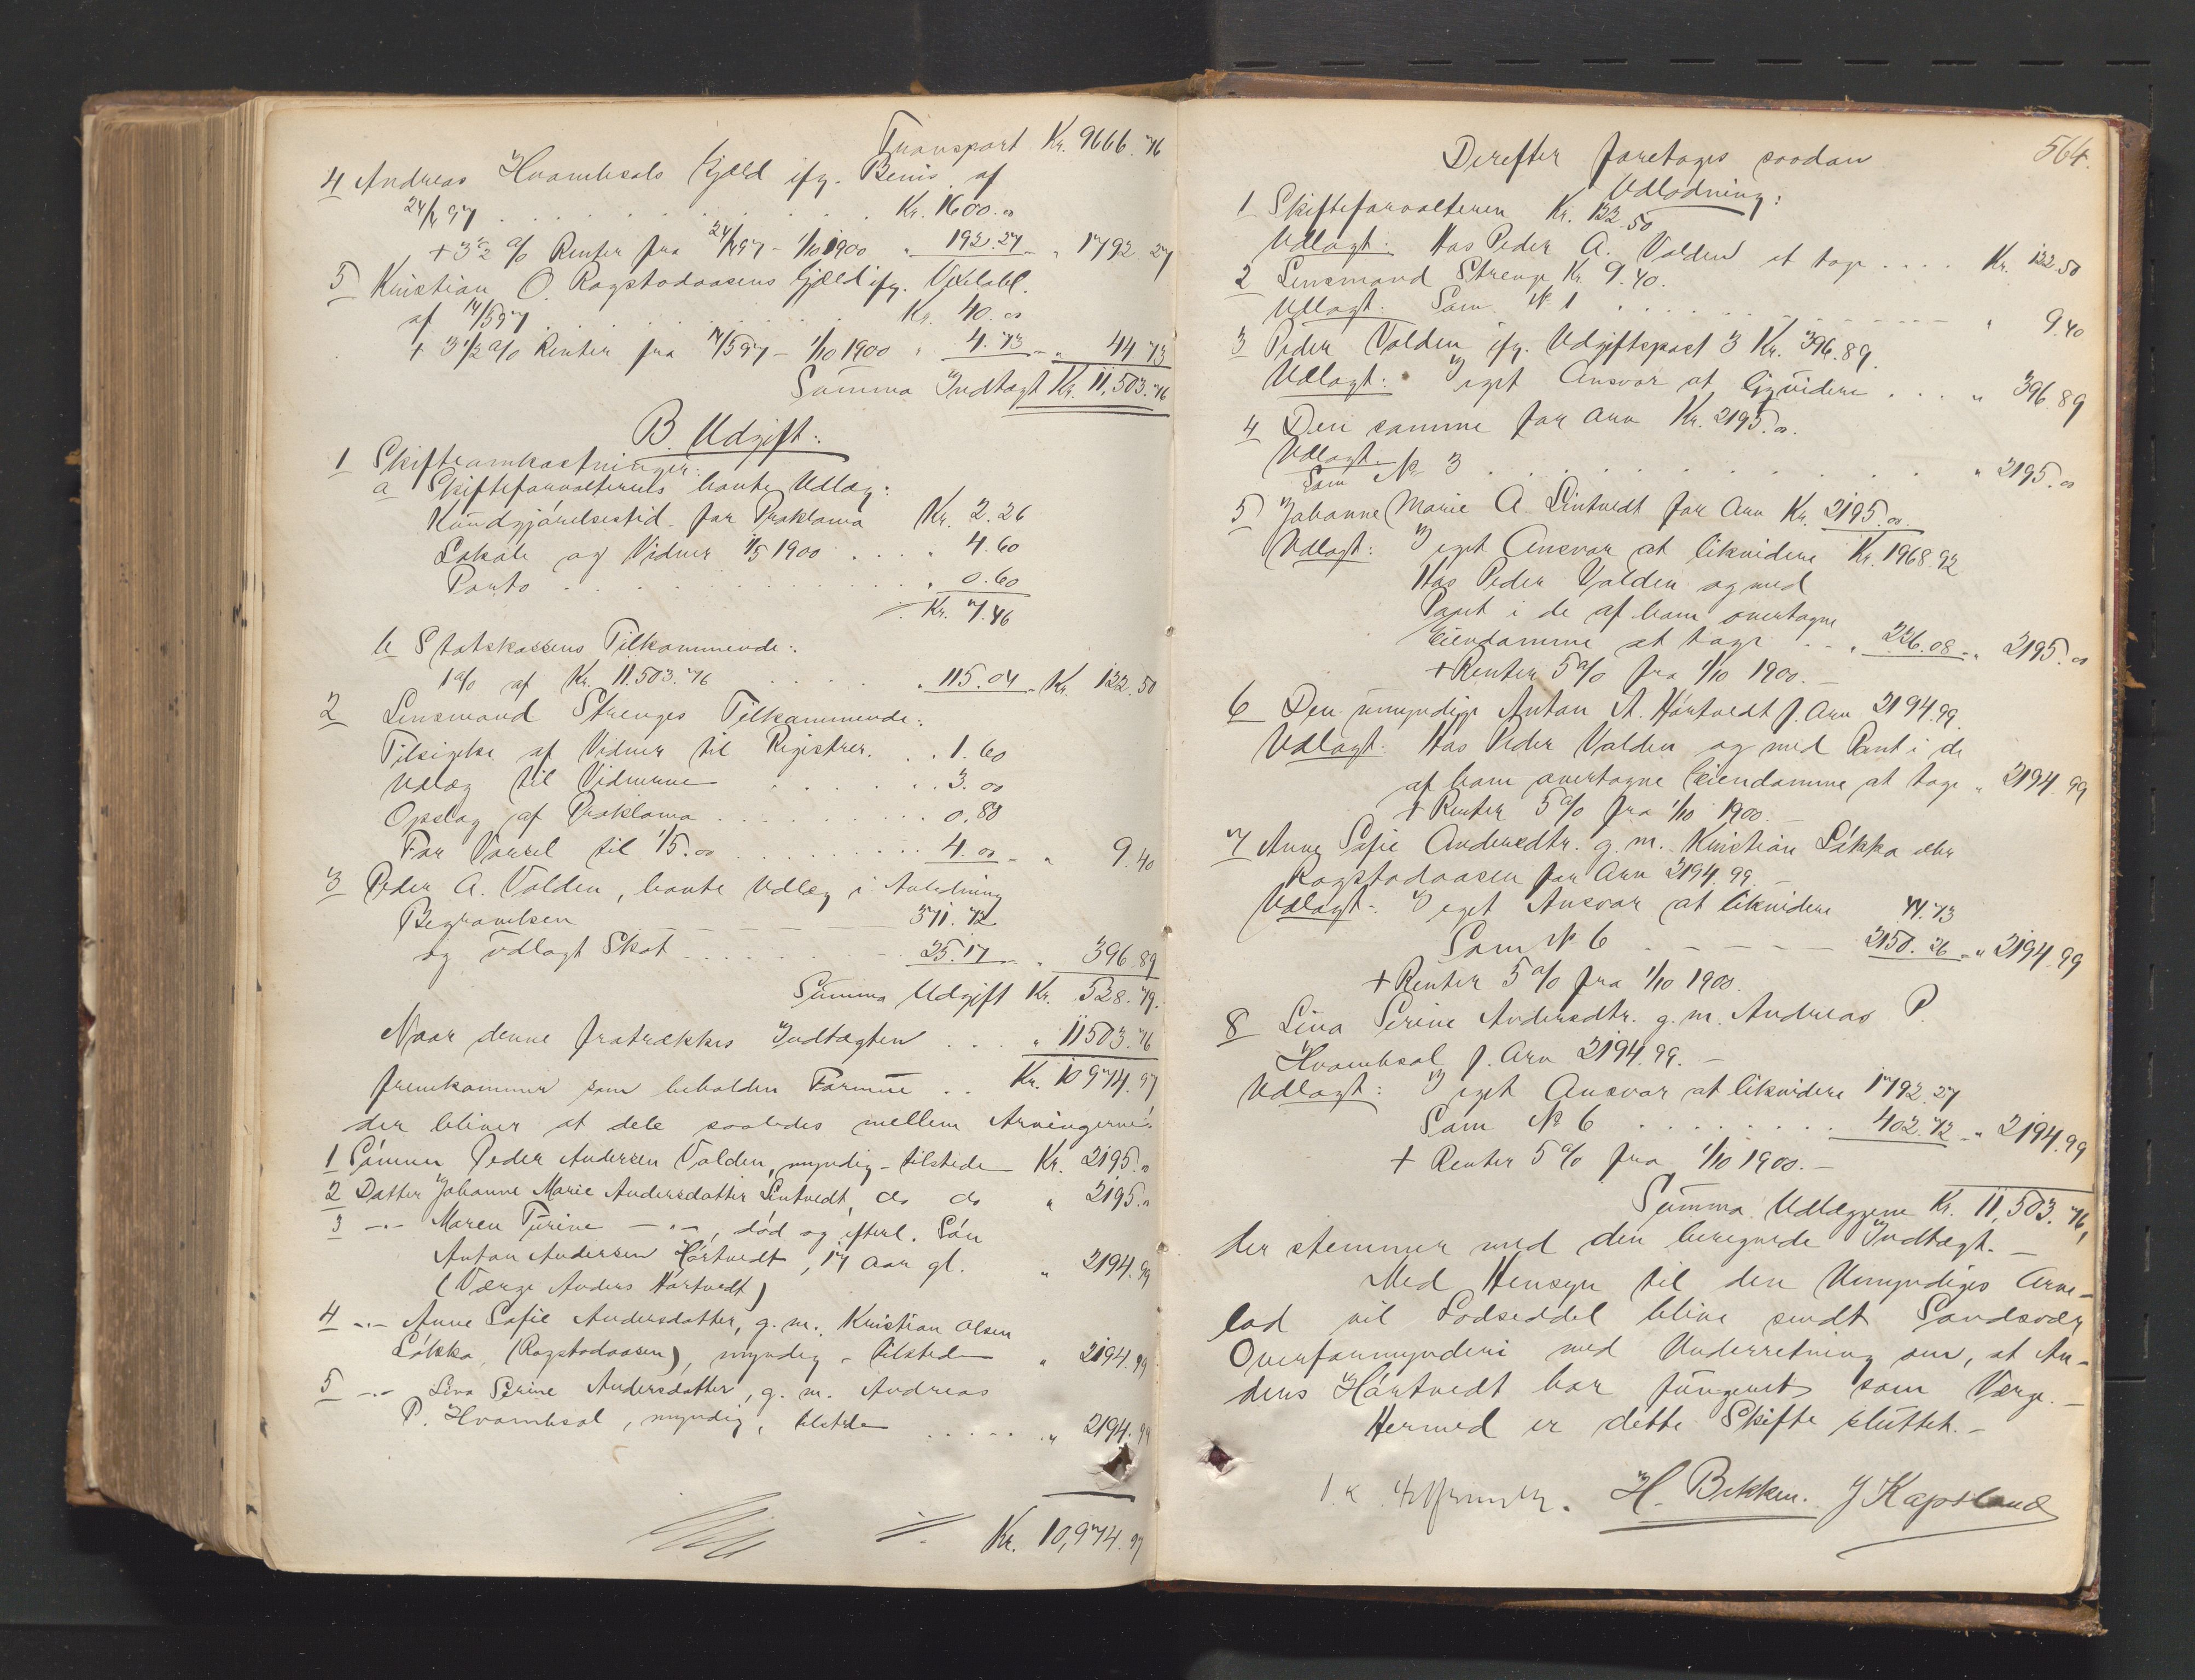 Transport Kr. 9666.76
4 Andreas Hvambsals Gjæld ifg. Bevis af
24/4 97 . . . Kr. 1600.00
+ 3 1/2 % Renter fra 24/4 97 - 1/10 1900 " 192.27 - " 1792.27
5 Kristian O. Ragstadaasens Gjæld ifg. Vexelobl.
af 14/5 97 . . . Kr. 40.00
+ 3 1/2 % Renter fra 14/5 97 - 1/10 1900 " 4.73 - " 44.73
Summa Indtægt Kr. 11,503.76
B. Udgift:
1 Skifteomkostninger:
a Skifteforvalterens havte Udlæg:
Kundgjørelsestid. for Proklama Kr. 2.26
Lokale og Vidner 1/5 1900 . . . " 4.60
Porto . . . " 0.60
Kr. 7.46
b Statskassens Tilkommende:
1 % af Kr. 11.503.76 . . . " 115.04 - Kr. 122.50
2 Lensmand Strenges Tilkommende:
Tilsigelse af Vidner til Registrer. . . 1.60
Udlæg til Vidnerne . . . 3.00
Opslag af Proklama . . . 0.80
For Varsel til 1/5.00 . . . 4.00 - " 9.40
3 Peder A. Valden, havte Udlæg i Anledning
Begravelsen 371.72
og udlagt Skat . . . 25.17 - " 396.89
Summa Udgift Kr. 528.79.
Naar denne fratrækkes Indtægten . . . " 11503.76
fremkommer som beholden Formue . . Kr. 10974.97
der bliver at dele saaledes mellem Arvingerne:
1 Sønnen Peder Andersen Valden, myndig - tilstede - Kr. 2195.00
2 Datter Johanne Marie Andersdatter Lintvedt, do do " 2195.00
3 -"- Maren Turine -"-, død og efterl. Søn
Anton Andersen Hørtvedt, 17 Aar gl. " 2194.99
(Værge Anders Hørtvedt)
4 -"- Anne Sofie Andersdatter, g. m. Kristian Olsen
Løkka, (Ragstadaasen), myndig - tilstede " 2194.99
5 -"- Lina Serine Andersdatter, g. m. Andreas
P. Hvambsal, myndig, tilstede . . . " 2194.99
Kr. 10,974.97
564.
Derefter foretages saadan
Udlodning:
1 Skifteforvalteren Kr. 122.50
Udlagt: Hos Peder A. Valden at tage . . . . Kr. 122.50
2 Lensmand Strenge Kr. 9.40.
Udlagt: Som № 1 . . . " 9.40
3 Peder Valden ifg. Udgiftspost 3 Kr. 396.89
Udlagt: I eget Ansvar at liqvidere . . . " 396.89
4 Den samme for Arv Kr. 2195.00.
Udlagt
Som № 3 . . . " 2195.00
5 Johanne Marie A. Lintvedt for Arv Kr. 2195.00.
Udlagt: I eget Ansvar at likvidere Kr. 1968.92
Hos Peder Valden og med
Pant i de af ham overtagne
Eiendomme at tage . . " 226.08 - " 2195.00
+ Renter 5 % fra 1/10 1900. -
6 Den umyndige Anton A. Hørtvedt f. Arv 2194.99
Udlagt: Hos Peder Valden og med Pant i de
af ham overtagne Eiendomme at tage " 2194.99
+ Renter 5 % fra 1/10 1900. -
7 Anne Sofie Andersdtr. g. m. Kristian Løkka eller
Ragstadaasen for Arv 2194.99 -
Udlagt: I eget Ansvar at likvidere 44.73
Som № 6 - - - - 2150.26 - " 2194.99
+ Renter 5 % fra 1/10 1900.
8 Lina Serine Andersdtr. g. m. Andreas P.
Hvambsal f. Arv 2194.99. -
Udlagt: I eget Ansvar at likvidere 1792.27
Som № 6 . . . 402.72 - " 2194.99
+ Renter 5 % fra 1/10 1900. -
Summa Udlæggene Kr. 11,503.76,
der stemmer med den beregnede Indtægt. -
Med Hensyn til den Umyndiges Arve-
lod vil Lodseddel blive sendt Sandsvær
Overformynderi med Underretning om, at An-
ders Hørtvedt har fungeret som Værge. -
Hermed er dette Skifte sluttet. -
H. Bekken. J Kapstand